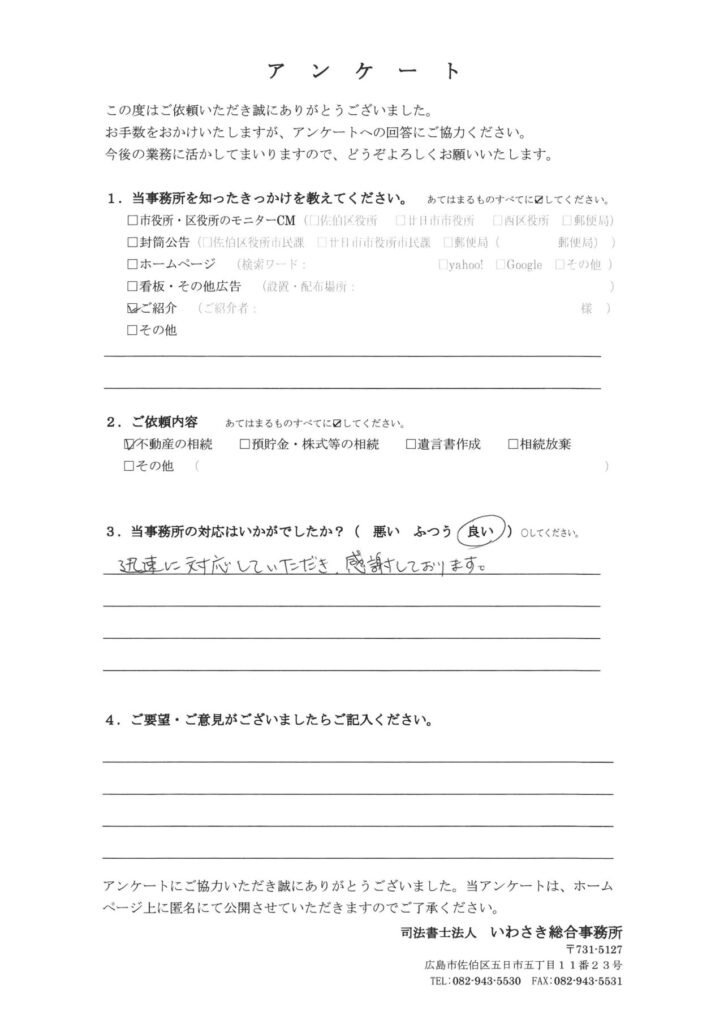 アンケート
この度はご依頼いただき誠にありがとうございました。
お手数をおかけいたしますが、アンケートへの回答にご協力ください。
今後の業務に活かしてまいりますので、どうぞよろしくお願いいたします。
１．当事務所を知ったきっかけを教えてください。 あてはまるものすべてに☑してください。
□市役所・区役所のモニターCM（□佐伯区役所 □廿日市市役所 □西区役所 □郵便局）
□封筒公告（□佐伯区役所市民課 □廿日市市役所市民課 □郵便局（ 郵便局） ）
□ホームページ （検索ワード： □yahoo! □Google □その他 ）
□看板・その他広告 （設置・配布場所： ）
☑ご紹介 （ご紹介者： 様 ）
□その他
２．ご依頼内容 あてはまるものすべてに☑してください。
☑不動産の相続 □預貯金・株式等の相続 □遺言書作成 □相続放棄
□その他 （ ）
３．当事務所の対応はいかがでしたか？（ 悪い ふつう 良い ）○してください。
迅速に対応していただき、感謝しております。
４．ご要望・ご意見がございましたらご記入ください。
アンケートにご協力いただき誠にありがとうございました。当アンケートは、ホーム
ページ上に匿名にて公開させていただきますのでご了承ください。
司法書士法人 いわさき総合事務所
〒731-5127
広島市佐伯区五日市五丁目１１番２３号
TEL：082-943-5530 FAX：082-943-5531